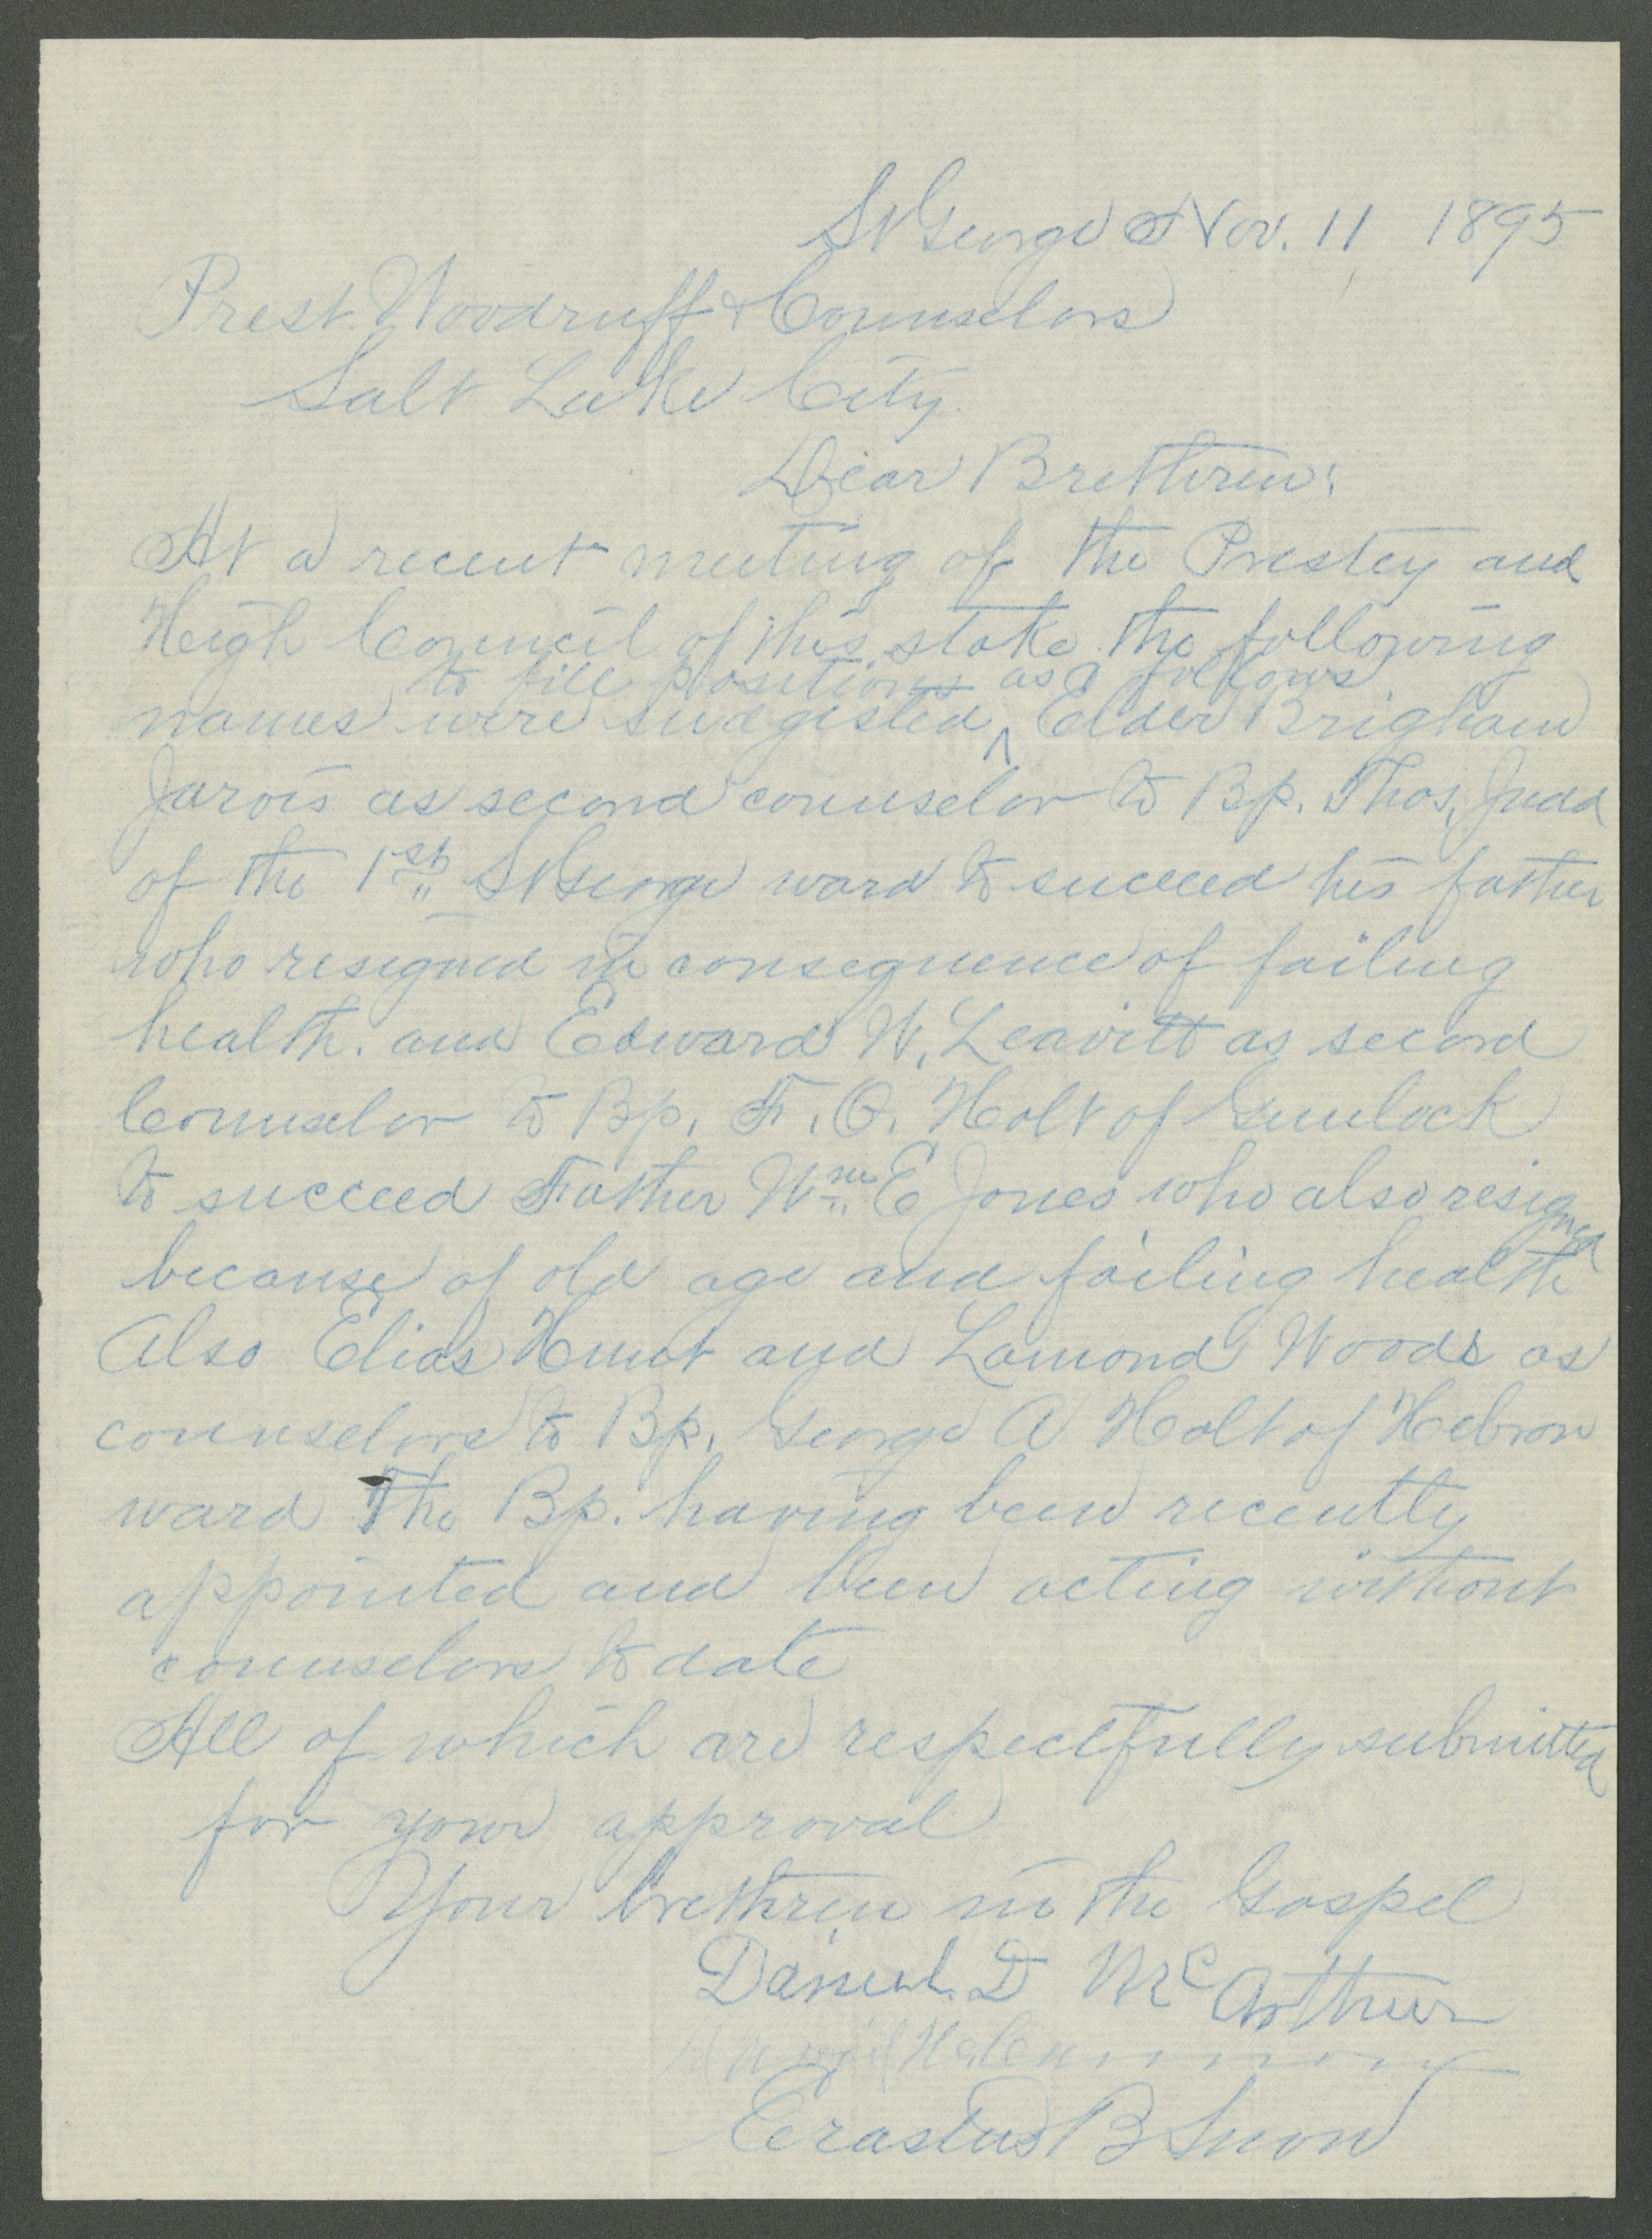 St George Nov. 11 1895
Prest. Woodruff & Counselors
Salt Lake City.
Dear Brethren:
At a recent meeting of the Prestcy and
High Council of this stake the following
to fill positions as follows
names were sudgested ^ Elder Brigham
Jarvis as second counselor to Bp. Thos. Judd
of the 1st St George ward to succeed his father
who resigned in consequence of failing
health. and Edward W. Leavitt as second
Counselor to Bp. F. O. Holt of Gunlock
to succeed Father Wm E Jones who also resigned
because of old age and failing health
Also Elias Hunt and Lamond Woods as
counselors to Bp. George A Holt of Hebron
ward The Bp. having been recently
appointed and been acting without
counselors to date
All of which are respectfully submitted
for your approval
Your brethren in the Gospel
Daniel. D McArthur
Erastus B Snow